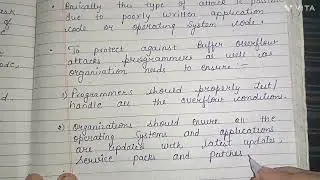 Basically this type of attack is possible
due to poorly written application
code or operating system code.
To protect against Buffer overflow
attacks programmers as well as
organisation needs to ensure :-
1) Programmers should properly test/
handle all the overflow conditions.
2) Organizations should ensure all the
operating systems and applications
are updated with latest updates,
service packs and patches.
of
code,
VITA